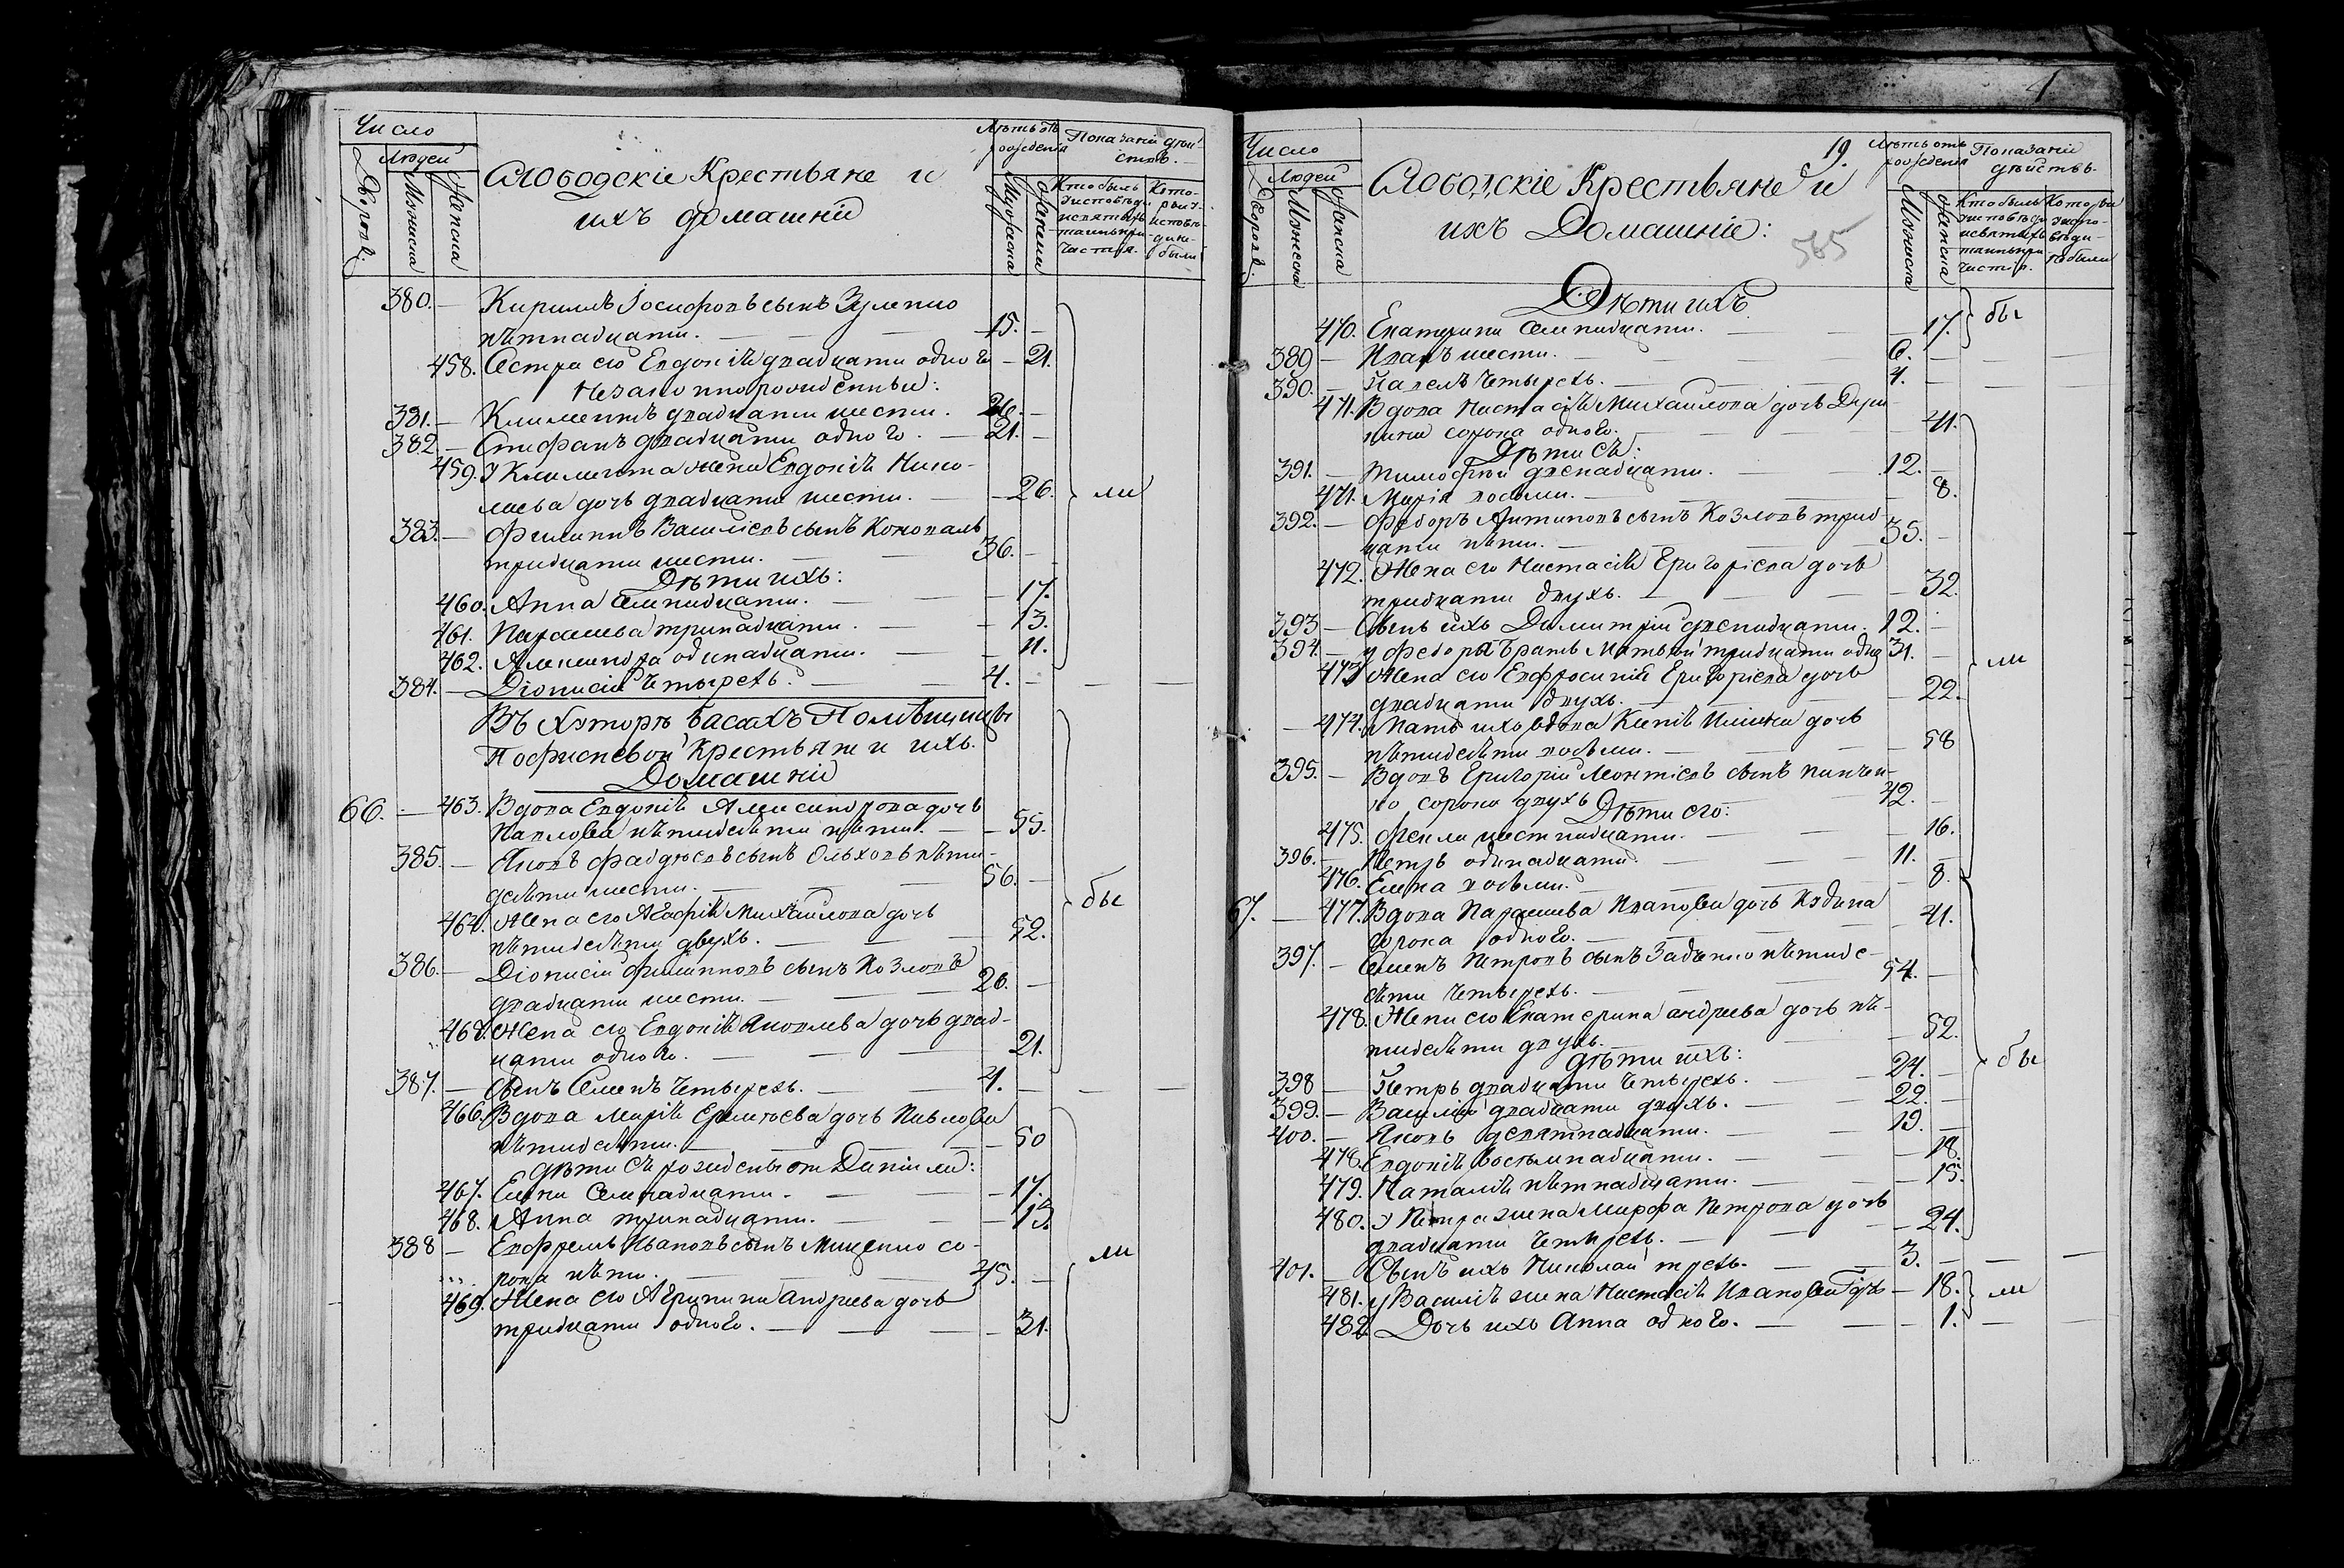 Число
Людей
Дворовъ.
Мужеска
Женска
Слободскіе Крестьяне и
ихъ домашніи
Лѣтъ отъ рожденія
Мужеска
Женска
Показаніе дѣйствъ.
Кто былъ у исповѣди и святыхъ таинъ причастія.
Которыи у исповѣди не были
380. — Кириллъ Іосифовъ сынъ Зуленко
пѣтнадцати. — 15. —
458. Сестра его Евдокіѣ двадцати одного — 21.
Незаконнорожденныи:
381. — Климентъ двадцати шести. 26. —
382 — Стефанъ двадцати одного. — 21. —
459. У Климента жена Евдокіѣ Нико-
лаева дочь двадцати шести. — 26. ли
383. — Филиппъ Василіевъ сынъ Коноваль
тридцати шести. — 36. —
Дѣти ихъ:
460. Анна семнадцати. — 17.
461. Параскева тринадцати. — 13.
462. Александра одинадцати. — 11.
384. — Діонисій четырехъ. — 4. — — —
Въ Хуторѣ Басахъ Помѣщицы
Крестьяне и ихъ
Домашніи
66. — 463. Вдова Евдокіѣ Александрова дочь
Павлова пѣтидесѣти пѣти. — 55.
385. — Яковъ Фаддѣевъ сынъ Ольховъ пѣти-
десѣти шести. — 56. — бы
464. Жена его Агафіѣ Михайлова дочь
пѣтидесѣти двухъ. — 52.
386. — Діонисій Филипповъ сынъ Козловъ
двадцати шести. — 26. —
465. Жена его Евдокіѣ Яковлева дочь двад-
цати одного. — 21.
387. — Сынъ Семенъ четырехъ. — 4. — — —
466. Вдова Маріѣ дочь Павлова
пѣтидесѣти. — 50
Дѣти съ рожденны от Даніила:
467. Елена семнадцати. — 17.
468. Анна тринадцати. — 13.
388 — Евфремъ Ивановъ сынъ Мищенко со-
рока пѣти. — 45. — ли
469. Жена его Агрипина Андреева дочь
тридцати одного. — 31.
19.
Число
Людей
Дворовъ.
Мужеска
Женска
Слободскіе Крестьяне и
ихъ Домашніе:
565
Лѣтъ отъ рожденія
Мужеска
Женска
Показаніе дѣйствъ.
Дѣти ихъ
470. Екатерина семнадцати. — 17. бы
389 — Иванъ шести. — 6. — — —
390. — Павелъ четырехъ. — 4. — — —
471. Вдова Настасіѣ Михайлова дочь
сорока одного. — 41.
Дѣти еѣ:
391. — Тимофей двенадцати. — 12. —
471. Марія восьми. — 8.
392. — Федоръ Антиповъ сынъ Козловъ трид-
цати пѣти. — 35. —
472. Жена его Настасіѣ Григоріева дочь
тридцати двухъ. — 32.
393 — Сынъ ихъ Димитрій двенадцати. 12. —
394. — у Федора братъ Матвѣй тридцати одно 31. — ли
473 Жена его Евфросиніѣ Григоріева дочь
двадцати двухъ. — 22.
— 474. Мать ихъ вдова дочь
пѣтидесѣти восьми. — 58
395. — Вдовъ Григорій Леонтіевъ сынъ
сорока двухъ — 42. —
Дѣти его:
475. Фекла шестнадцати. — 16.
396. — Петръ одинадцати. — 11. —
476. Елена восьми. — 8.
67. — 477. Вдова Параскева Иванова дочь
сорока одного. — 41.
397. — Семенъ Петровъ сынъ пѣтиде-
сѣти четырехъ. — 54. —
478. Жена его Екатерина Андреева дочь пѣ-
тидесѣти двухъ. — 52.
Дѣти ихъ: бы
398 — Петръ двадцати четырехъ. — 24. —
399. — Василій двадцати двухъ. — 22. —
400. — Яковъ девятнадцати. — 19. —
478. Евдокіѣ восьмнадцати. — 18.
479. Наталіѣ пѣтнадцати. — 15.
480. у Петра жена Марфа Петрова дочь
двадцати четырехъ. — 24.
401. — Сынъ ихъ Николай трехъ. — 3. — — —
481. у Василіѣ жена Настасіѣ Иванова дочь — 18. ли
482. Дочь ихъ Анна одного. — 1. — —